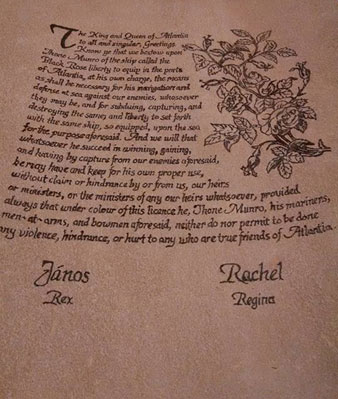 The King and Queen of Atlantia
to all and singular, Greetings
Know ye that we bestow upon
Thone Munro of the ship called the
Black Rose liberty to equip in the ports
of Atlantia, at his own charge, the means
as shall be necessary for his navigation and
defense at sea against our enemies, whosoever
they may be, and for subduing, capturing, and
destroying the same; and liberty to set forth
with the same ship, so equipped, upon the sea
for the purpose aforesaid. And we will that
whatsoever he succeed in winning, gaining,
and having by capture from our enemies aforesaid,
he may have and keep for his own proper use,
without claim or hindrance by or from us, our heirs
or ministers, or the ministers of any our heirs whatsoever, provided
always that under colour of this licence he, Thone Munro, his mariners,
men-at-arms, and bowmen aforesaid, neither do nor permit to be done
any violence, hindrance, or hurt to any who are true friends of Atlantia.
János
Rex
Rachel
Regina